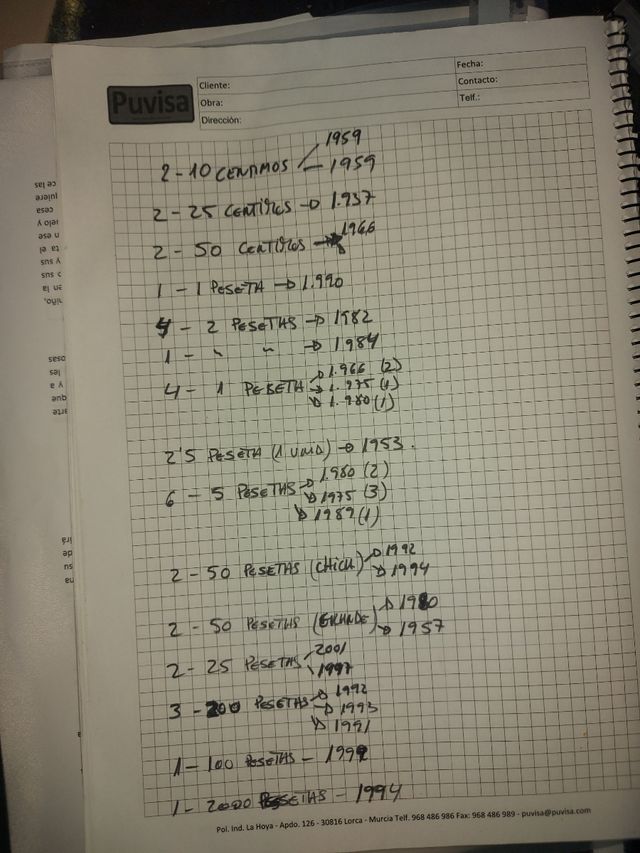 Puvisa
Cliente:
Obra:
Dirección:
Fecha:
Contacto:
Telf.:
2 - 10 CENTIMOS 1959
1959
2 - 25 CENTIMOS → 1.937
2 - 50 CENTIMOS → 1966
1 - 1 PESETA → 1.990
4 - 2 PESETAS → 1982
1 - " " → 1984
4 - 1 PESETA → 1.966 (2)
→ 1.975 (1)
→ 1.980 (1)
2'5 PESETA (1 UNID) → 1953.
6 - 5 PESETAS → 1.980 (2)
→ 1975 (3)
→ 1989 (1)
2 - 50 PESETAS (CHICA) → 1992
→ 1994
2 - 50 PESETAS (GRANDE) → 1980
→ 1957
2 - 25 PESETAS 2001
1997
3 - 200 PESETAS → 1992
→ 1993
→ 1991
1 - 100 PESETAS - 1992
1 - 2000 PESETAS - 1994
Pol. Ind. La Hoya - Apdo. 126 - 30816 Lorca - Murcia Telf. 968 486 986 Fax: 968 486 989 - puvisa@puvisa.com